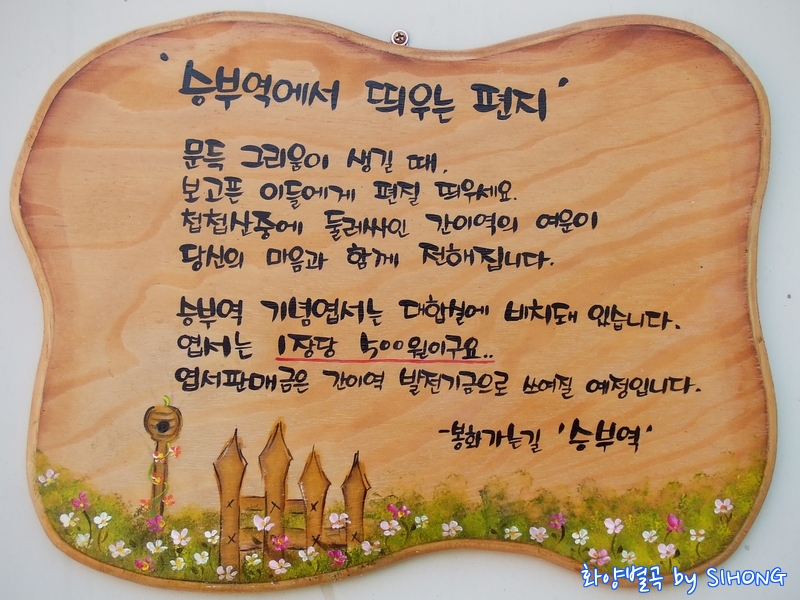 '승부역에서 띄우는 편지'
문득 그리움이 생길 때,
보고픈 이들에게 편질 띄우세요.
첩첩산중에 둘러싸인 간이역의 여운이
당신의 마음과 함께 전해집니다.
승부역 기념엽서는 대합실에 비치돼 있습니다.
엽서는 1장당 500원이구요..
엽서판매금은 간이역 발전기금으로 쓰여질 예정입니다.
-봉화가는길 '승부역'
화양별곡 by SIHONG